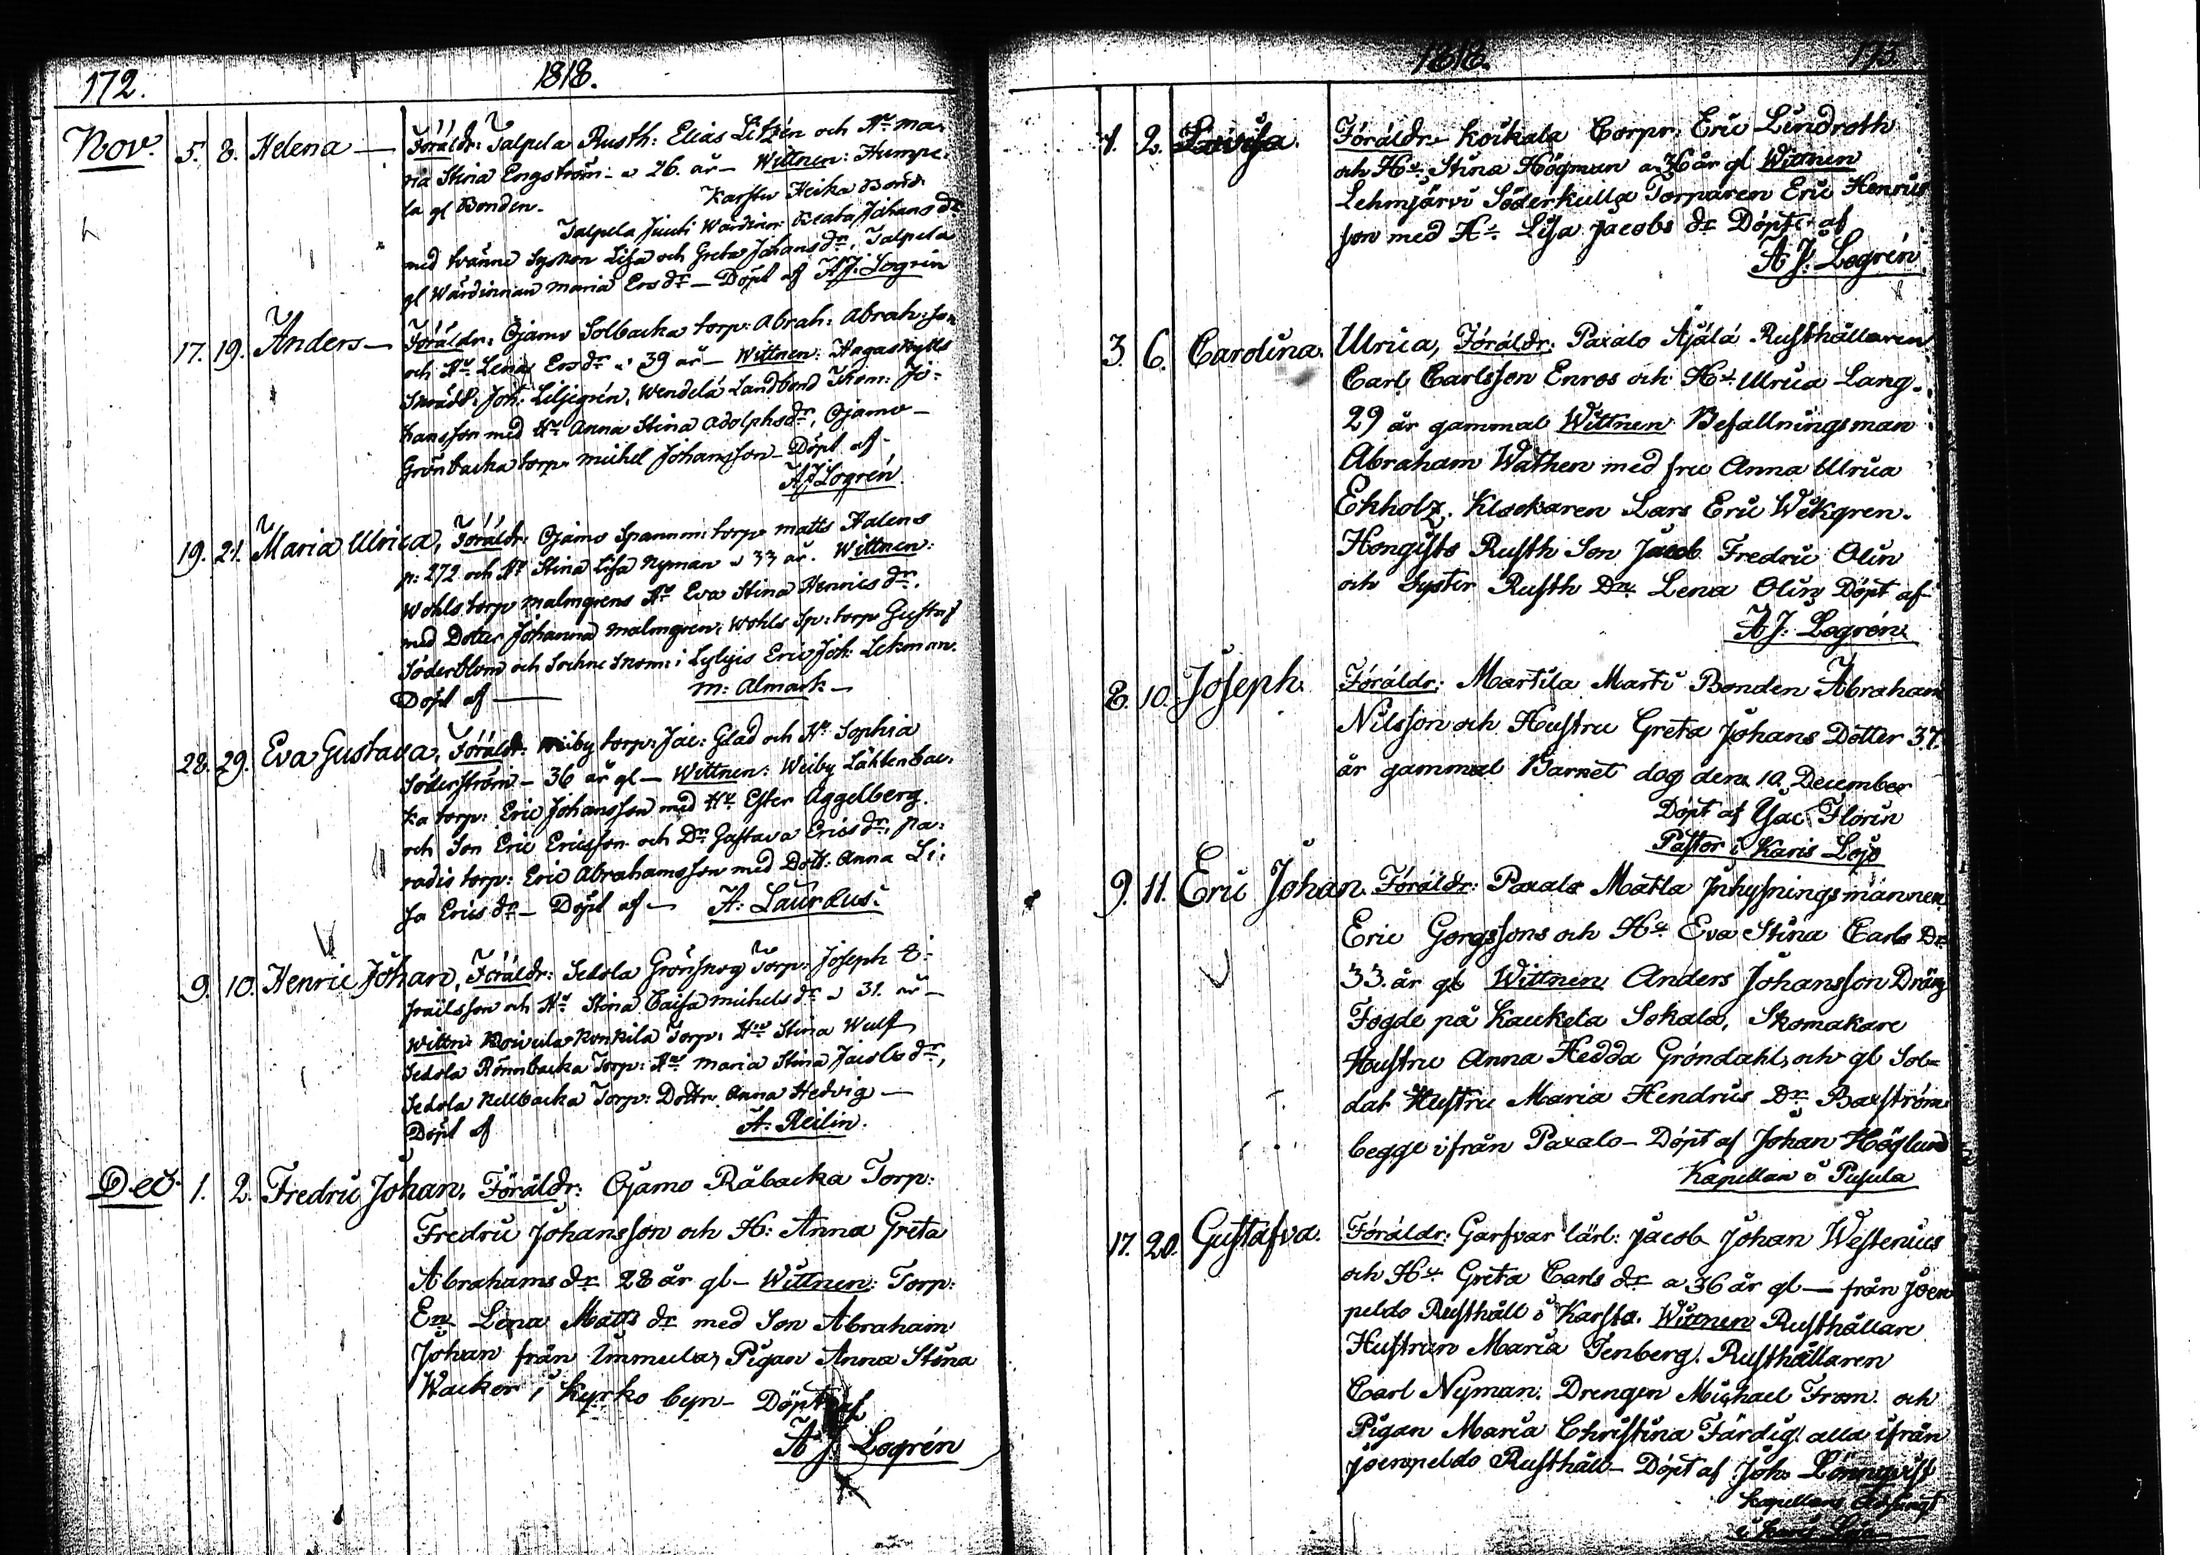 172. 1818.
Nov. 5. 8. Helena — Föräldr: Talpela Rusth: Elias Litzén och Hu ma-
ria Stina Engström - a 26. år - Wittnen: Humpe-
la gl Bonden. Karstu Heika Bond
Talpela Juuti Wärdinn Beata Johans dr
med tvänne Syskon Lisa och Greta Johans dr, Talpela
gl Wärdinnan Maria Ers dr — Döpt af A J: Logrén
17. 19. Anders — Föräldr: Ojamo Solbacka torp: Abrah: Abrah:son
och Hu Lena Ersdr a 39 år — Wittnen: Hagaskylls
Skrädd: Joh: Liljegrén, Wendelä Landbond Thom: Jo-
hansson med Hu Anna Stina Adolphsdr, Ojamo —
Grönbacka torp michel Johansson — Döpt af —
A J Logrén
19. 21. Maria Ulrica, Föräldr: Ojamo Spannm: torp matts Halens
p: 272 och Hu Stina Lisa Nyman a 33 år. Wittnen:
Wohls torp malmgrens Hu Eva Stina Henrics dr.
med Dotter Johanna malmgren: Wohls Sp: torp Gustaf
Söderblom och Sockne Skom: i Lylyis Eric Joh: Lekman.
Döpt af — m: Almark —
28. 29. Eva Gustava, Föräldr: Wiiby torp: Jac: Glad och Hu Sophia
Söderström — 36 år gl — Wittnen: Weiby Lähtenbac-
ka torp: Eric Johansson med Hu Ester Aggelberg
och Son Eric Ericsson och Dr: Gustava Erics dr, Pa-
radis torp: Eric Abrahamsson med Dott: Anna Li-
sa Erics dr — Döpt af — A: Laurdus:
9. 10. Henric Johan, Föräldr: Sedola Grönskog Torp: Joseph E-
srailsson och Hu Stina Caisa michels dr a 31. år —
Wittn: Koivula Konkila Torp: Hu Stina Wulf
Sedola Rönnbacka Torp: Hu Maria Stina Jacobs dr,
Sedola Kellbacka Torp: Dottr Anna Hedvig —
Döpt af A: Reilin.
Dec. 1. 2. Fredric Johan, Föräldr: Ojamo Råbacka Torp:
Fredric Johansson och H: Anna Greta
Abrahams dr 28 år gl — Wittnen: Torp:
En Lena Matts dr med Son Abraham
Johan från Immula, Pigan Anna Stina
Wacker i Kyrko byn — Döpt af
A J: Logrén
1818. 173
1. 2. Lovisa. Föräldr. Koikala Corpr: Eric Lindroth
och Hu Stina Högman a 36 år gl Wittnen
Lehmjärvi Söderkulla Torparen Eric Henrics
son med Hu Lisa Jacobs dr Döpt af
A J: Logrén
3. 6. Carolina. Ulrica, Föräldr: Paxalo Äjälä Rusthållaren
Carl Carlsson Enros och Hu Ulrica Lang.
29 år gammal Wittnen Befallningsman
Abraham Wathen med fru Anna Ulrica
Ekholz. Klockaren Lars Eric Wikgren.
Hongisto Rusth Son Jacob Fredric Olin
och Syster Rusth Dr Lena Olin Döpt af
A J: Logrén
8. 10. Joseph. Föräldr: Martila Marti Bonden Abraham
Nilsson och Hustru Greta Johans Dotter 37.
år gammal Barnet dog den 10. December
Döpt af Isac Florin
Pastor i Karis Lojo
9. 11. Eric Johan. Föräldr: Paxalo Matla Inhysningsmannen
Eric Gorgssons och Hu Eva Stina Carls Dr
33. år gl Wittnen Anders Johansson Dräng
Fogde på Kaukela Sokala, Skomakare
Hustru Anna Hedda Gröndahl, och gl Sol-
dat Hustru Maria Hendrics Dr Baxström
begge ifrån Paxalo — Döpt af Johan Höglund
Kapellan i Pusula
17. 20. Gustafva. Föräldr: Garfvar lärl: Jacob Johan Westenius
och Hu Greta Carls dr a 36 år gl — från Joen
peldo Rusthåll i Karsta. Wittnen Rusthållare
Hustrun Maria Tenberg. Rusthållaren
Carl Nyman. Drengen Michael From. och
Pigan Maria Christina Färdig. alla ifrån
Joenpeldo Rusthåll — Döpt af Joh: Lönnqvist